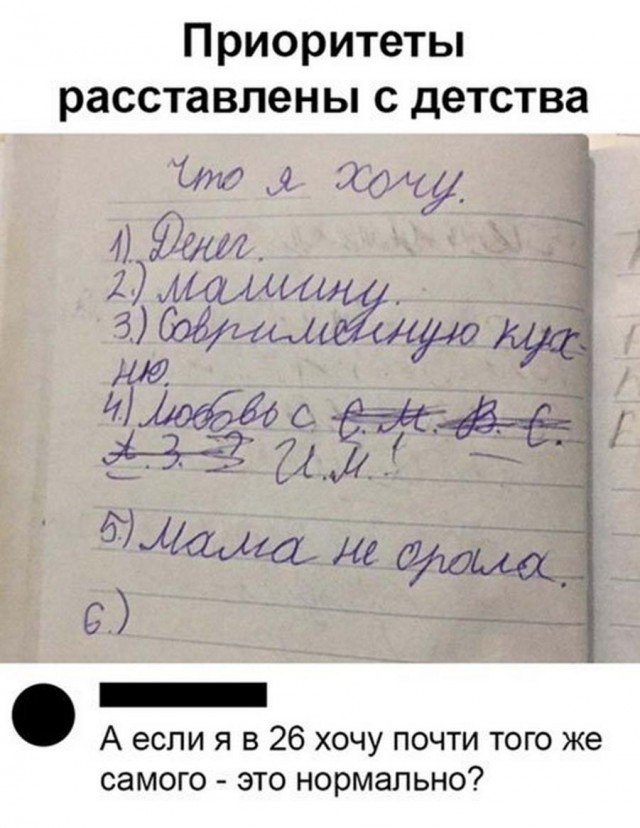 Приоритеты
расставлены с детства
Что я хочу.
1). Денег.
2.) машину.
3.) Совримєнную кух-
ню.
4.) Любовь с С.М. В. С.
А.З. З И.М!
5.) Мама не орала.
6.)
А если я в 26 хочу почти того же
самого - это нормально?